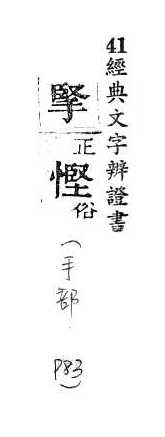 41經典文字辨證書
掔正慳俗(手部 P83)